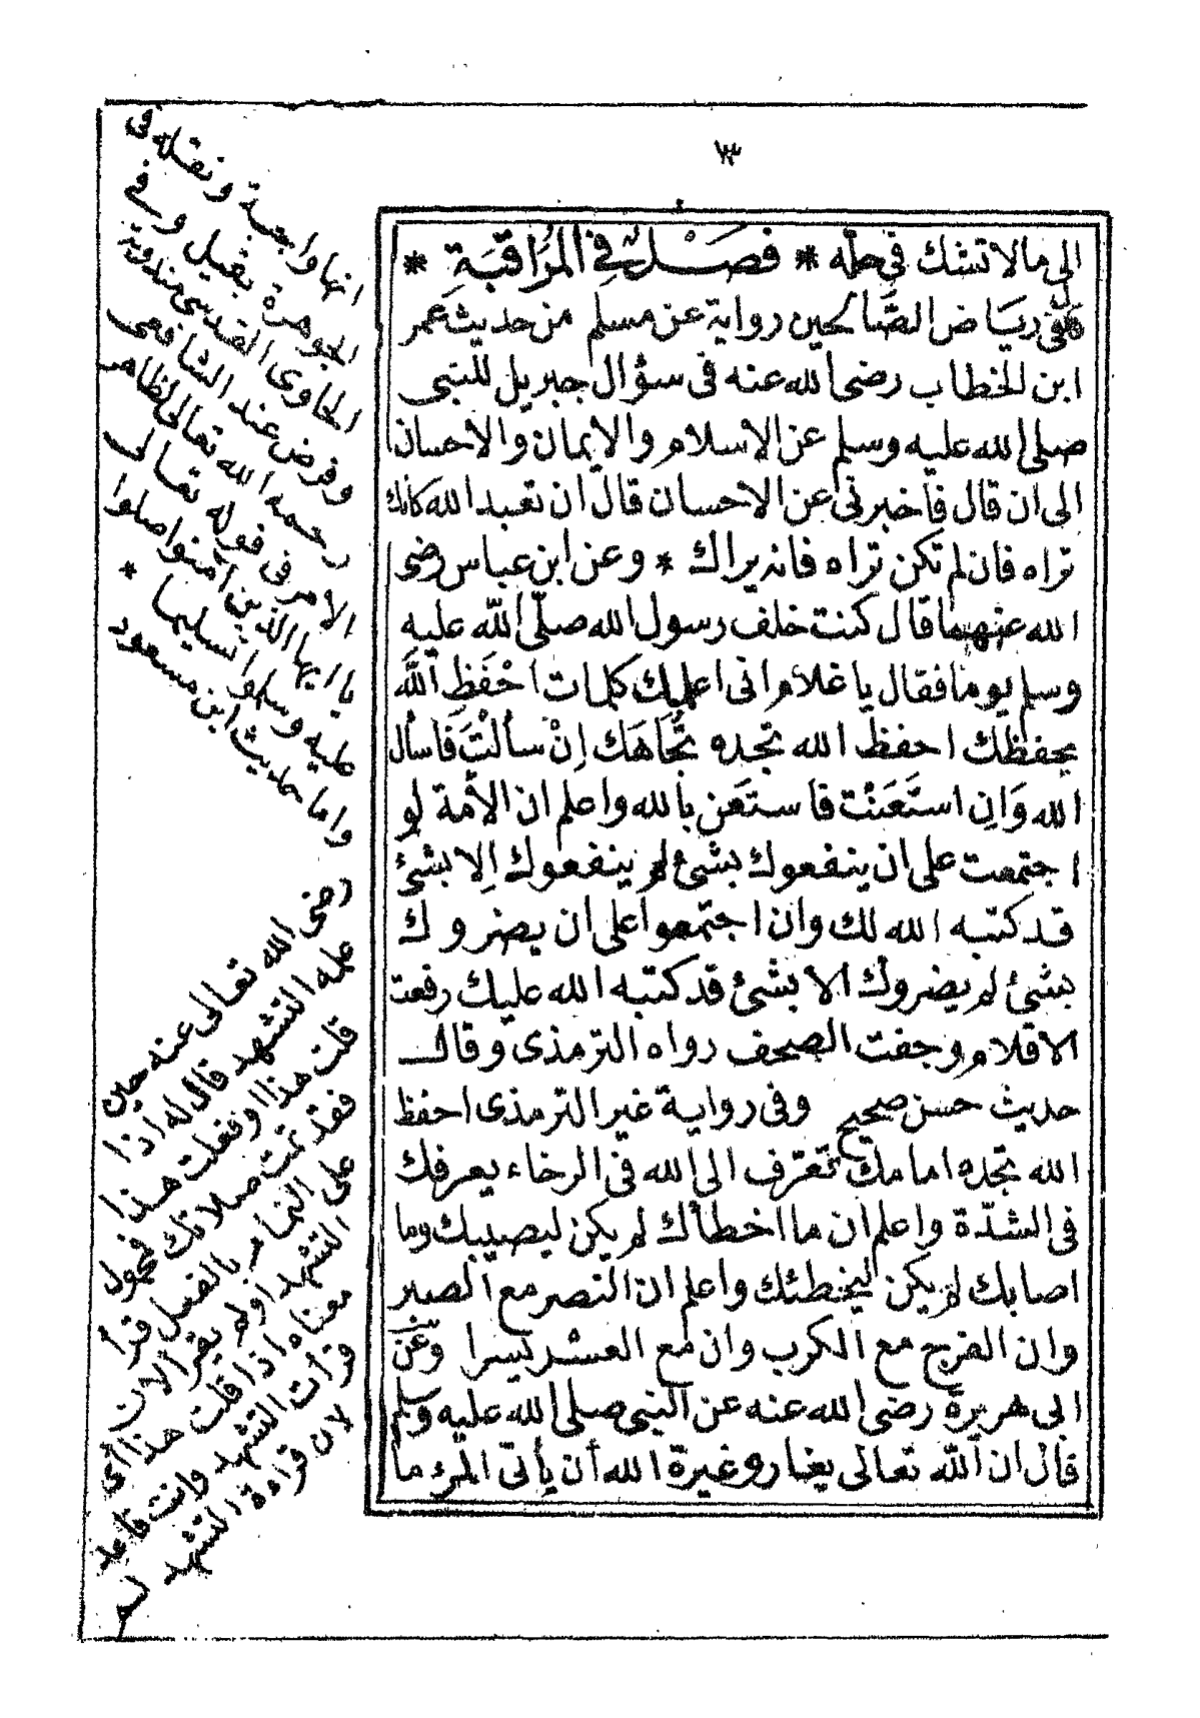 ١٣
الى مالا تشك فى حله * فَصْلٌ فِى الْمُرَاقَبَةِ *
ففى رياض الصَّالحين رواية عن مسلم من حديث عمر
ابن الخطاب رضى الله عنه فى سؤال جبريل للنبى
صلى الله عليه وسلم عن الاسلام والايمان والاحسان
الى ان قال فأخبرنى عن الاحسان قال ان تعبد الله كأنك
تراه فان لم تكن تراه فانه يراك * وعن ابن عباس رضى
الله عنهما قال كنت خلف رسول الله صلّى الله عليه
وسلم يوما فقال يا غلام انى اعلمك كلمات احْفَظِ اللَّه
يحفظك احفظ الله تجده تُجَاهَك اِنْ سألْتَ فَاسأل
الله وَاِن استَعَنْت فاستَعَن بالله واعلم ان الأمة لو
اجتمعت على ان ينفعوك بشئ لم ينفعوك اِلا بشئ
قد كتبه الله لك وان اجتمعوا على ان يضروك
بشئ لم يضروك الا بشئ قد كتبه الله عليك رفعت
الاقلام وجفت الصحف رواه الترمذى وقال
حديث حسن صحيح وفى رواية غير الترمذى احفظ
الله تجده امامك تعرّف الى الله فى الرخاء يعرفك
فى الشدّة واعلم ان ما اخطأك لم يكن ليصيبك وما
اصابك لم يكن ليخطئك واعلم ان النصر مع الصبر
وان الفرج مع الكرب وان مع العسر يسرا وعن
ابى هريرة رضى الله عنه عن النبى صلى الله عليه وسلم
قال ان اللّه تعالى يغار وغيرة الله أن يأتى المرء ما
انها واجبة ونقله فى
الجوهرة بقيل وفى
الحاوى القدسى مندوبة
وفرض عند الشافعى
رحمه الله تعالى لظاهر
الامر فى قوله تعالى
يا ايها الذين آمنوا صلوا
عليه وسلموا تسليما *
واما حديث ابن مسعود
رضى الله تعالى عنه حين
علمه التشهد قال له اذا
قلت هذا او فعلت هذا
فقد تمت صلاتك فمحمول
على التمام بالفعل قرأ
التشهد او لم يقرأ لان
معناه اذا قلت هذا أى
قرأت التشهد وانت قاعد
لان قراءة التشهد لم